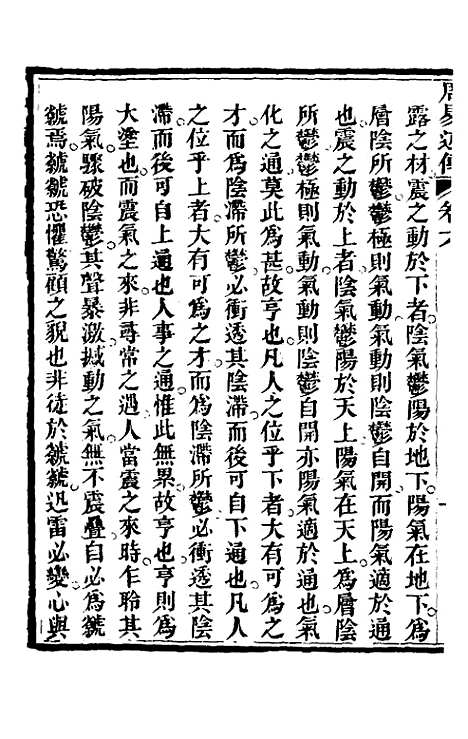 周易通傳 卷六
露之材震之動於下者陰氣鬱陽於地下陽氣在地下爲
層陰所鬱鬱極則氣動氣動則陰鬱自開而陽氣適於通
也震之動於上者陰氣鬱陽於天上陽氣在天上爲層陰
所鬱鬱極則氣動氣動則陰鬱自開亦陽氣適於通也氣
化之通莫此爲甚故亨也凡人之位乎下者大有可爲之
才而爲陰滯所鬱必衝透其陰滯而後可自下通也凡人
之位乎上者大有可爲之才而爲陰滯所鬱必衝透其陰
滯而後可自上通也人事之通惟此無累故亨也亨則爲
大塗也而震氣之來非尋常之遇人當震之來時乍聆其
陽氣驟破陰鬱其聲暴激撼動之氣無不震疊自必爲虩
虩焉虩虩恐懼驚顧之貌也非徒於虩虩迅雷必變心與